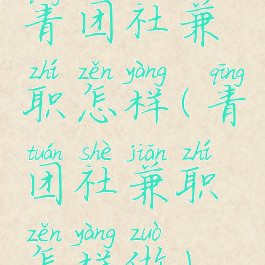 青团社兼
zhí zěn yàng qīng
职怎样(青
tuán shè jiān zhí
团社兼职
zěn yàng zuò
怎样做)